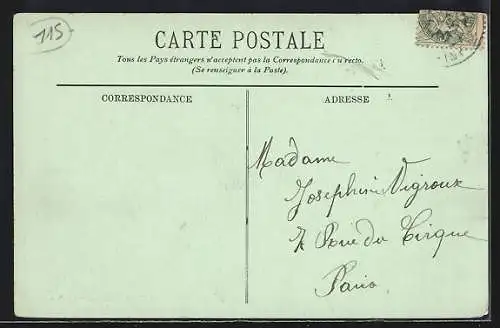 115
CARTE POSTALE
Tous les Pays étrangers n'acceptent pas la Correspondance au recto.
(Se renseigner à la Poste).
CORRESPONDANCE
ADRESSE
Madame
Josephine Vigroux
7 Rue du Cirque
Paris